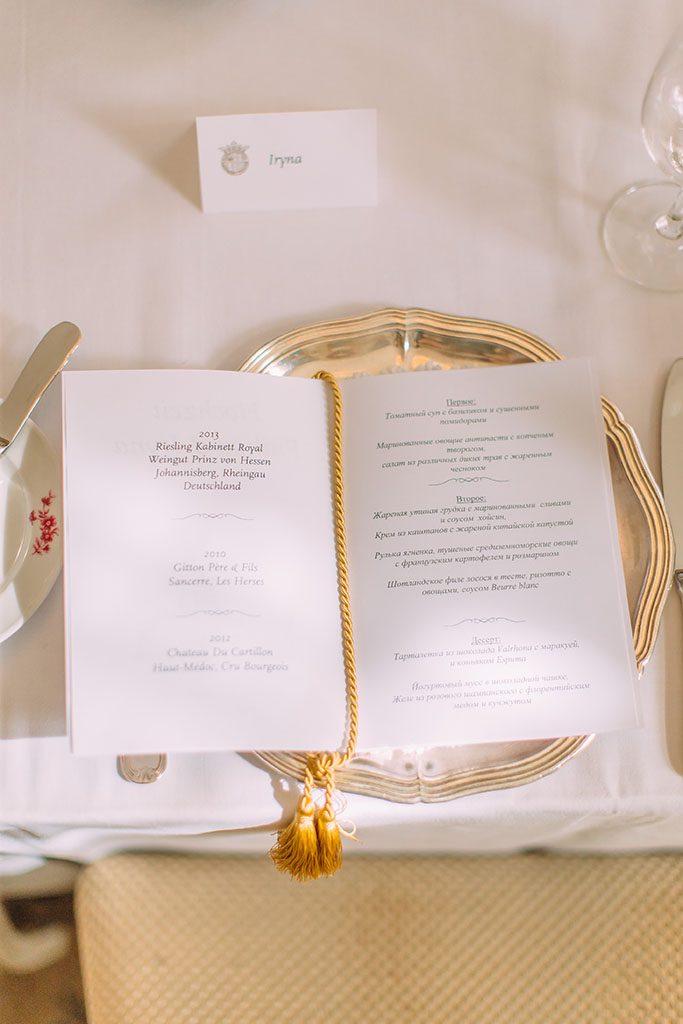 Iryna
2013
Riesling Kabinett Royal
Weingut Prinz von Hessen
Johannisberg, Rheingau
Deutschland
2010
Gitton Père & Fils
Sancerre, Les Herses
2012
Chateau Du Cartillon
Haut-Médoc, Cru Bourgeois
Первое:
Томатный суп с базиликом и сушенными
помидорами
Маринованные овощие антипасти с копченым
творогом,
салат из различных диких трав с жаренным
чесноком
Второе:
Жареная утиная грудка с маринованными сливами
и соусом хойсин,
Крем из каштанов с жареной китайской капустой
Рулька ягненка, тушеные средиземноморские овощи
с французским картофелем и розмарином
Шотландское филе лосося в тесте, ризотто с
овощами, соусом Beurre blanc
Десерт:
Тарталетка из шоколада Valrhona с маракуей,
и коньяком
Йогуртовый мусс в шоколадной чашке,
Желе из розового шампанского с флорентийским
медом и кунжутом